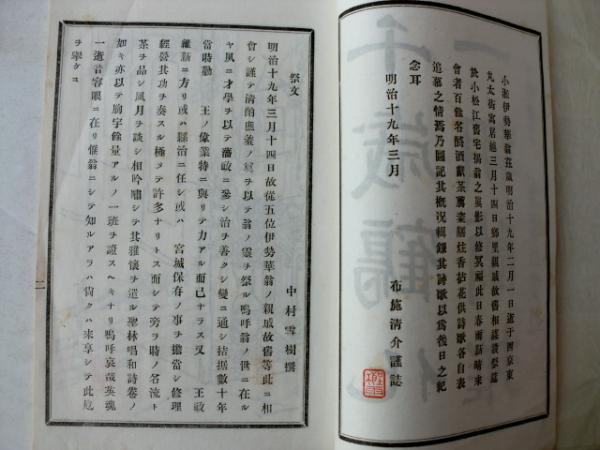 小淞伊勢華翁荘歳明治十九年二月一日逝于西京東
丸太街寓居越三月十四日鄉里親戚故舊相謀設祭筵
於小松江舊宅揭翁之眞影以修冥福此日春雨新晴來
會者百餘名酹酒獻茶薦羹膳炷香拈花供詩歌各自表
追慕之情焉乃圖記其概況輯錄其詩歌以爲後日之紀
念耳
明治十九年三月
布施淸介謹誌
祭文
中村雪樹撰
明治十九年三月十四日故從五位伊勢華翁ノ親戚故舊等此ニ相
會シ謹テ淸酌庶羞ノ奠ヲ以テ翁ノ靈ヲ祭ル嗚呼翁ノ世ニ在ル
ヤ夙ニ才學ヲ以テ藩政ニ參シ治ヲ善クシ變ニ通シ拮据數十年
當時勤 王ノ偉業特ニ與リテ力アル而已ナラス又 王政
維新ニ方リ或ハ縣治ニ任シ或ハ 宮城保存ノ事ヲ擔當シ修理
經營其功ヲ奏スル極メテ許多ナリトス而シテ旁ラ時ノ名流ト
茶ヲ品シ風月ヲ談シ相吟嘯シテ其雅懷ヲ遣ル聖林唱和詩卷ノ
如キ亦以テ胸宇餘量アルノ一班ヲ證スヘキナリ嗚呼哀哉英魂
一逝音容眼ニ在リ惟翁ニシテ知ルアラハ尙クハ來享シテ此巵
ヲ擧ケヨ
二